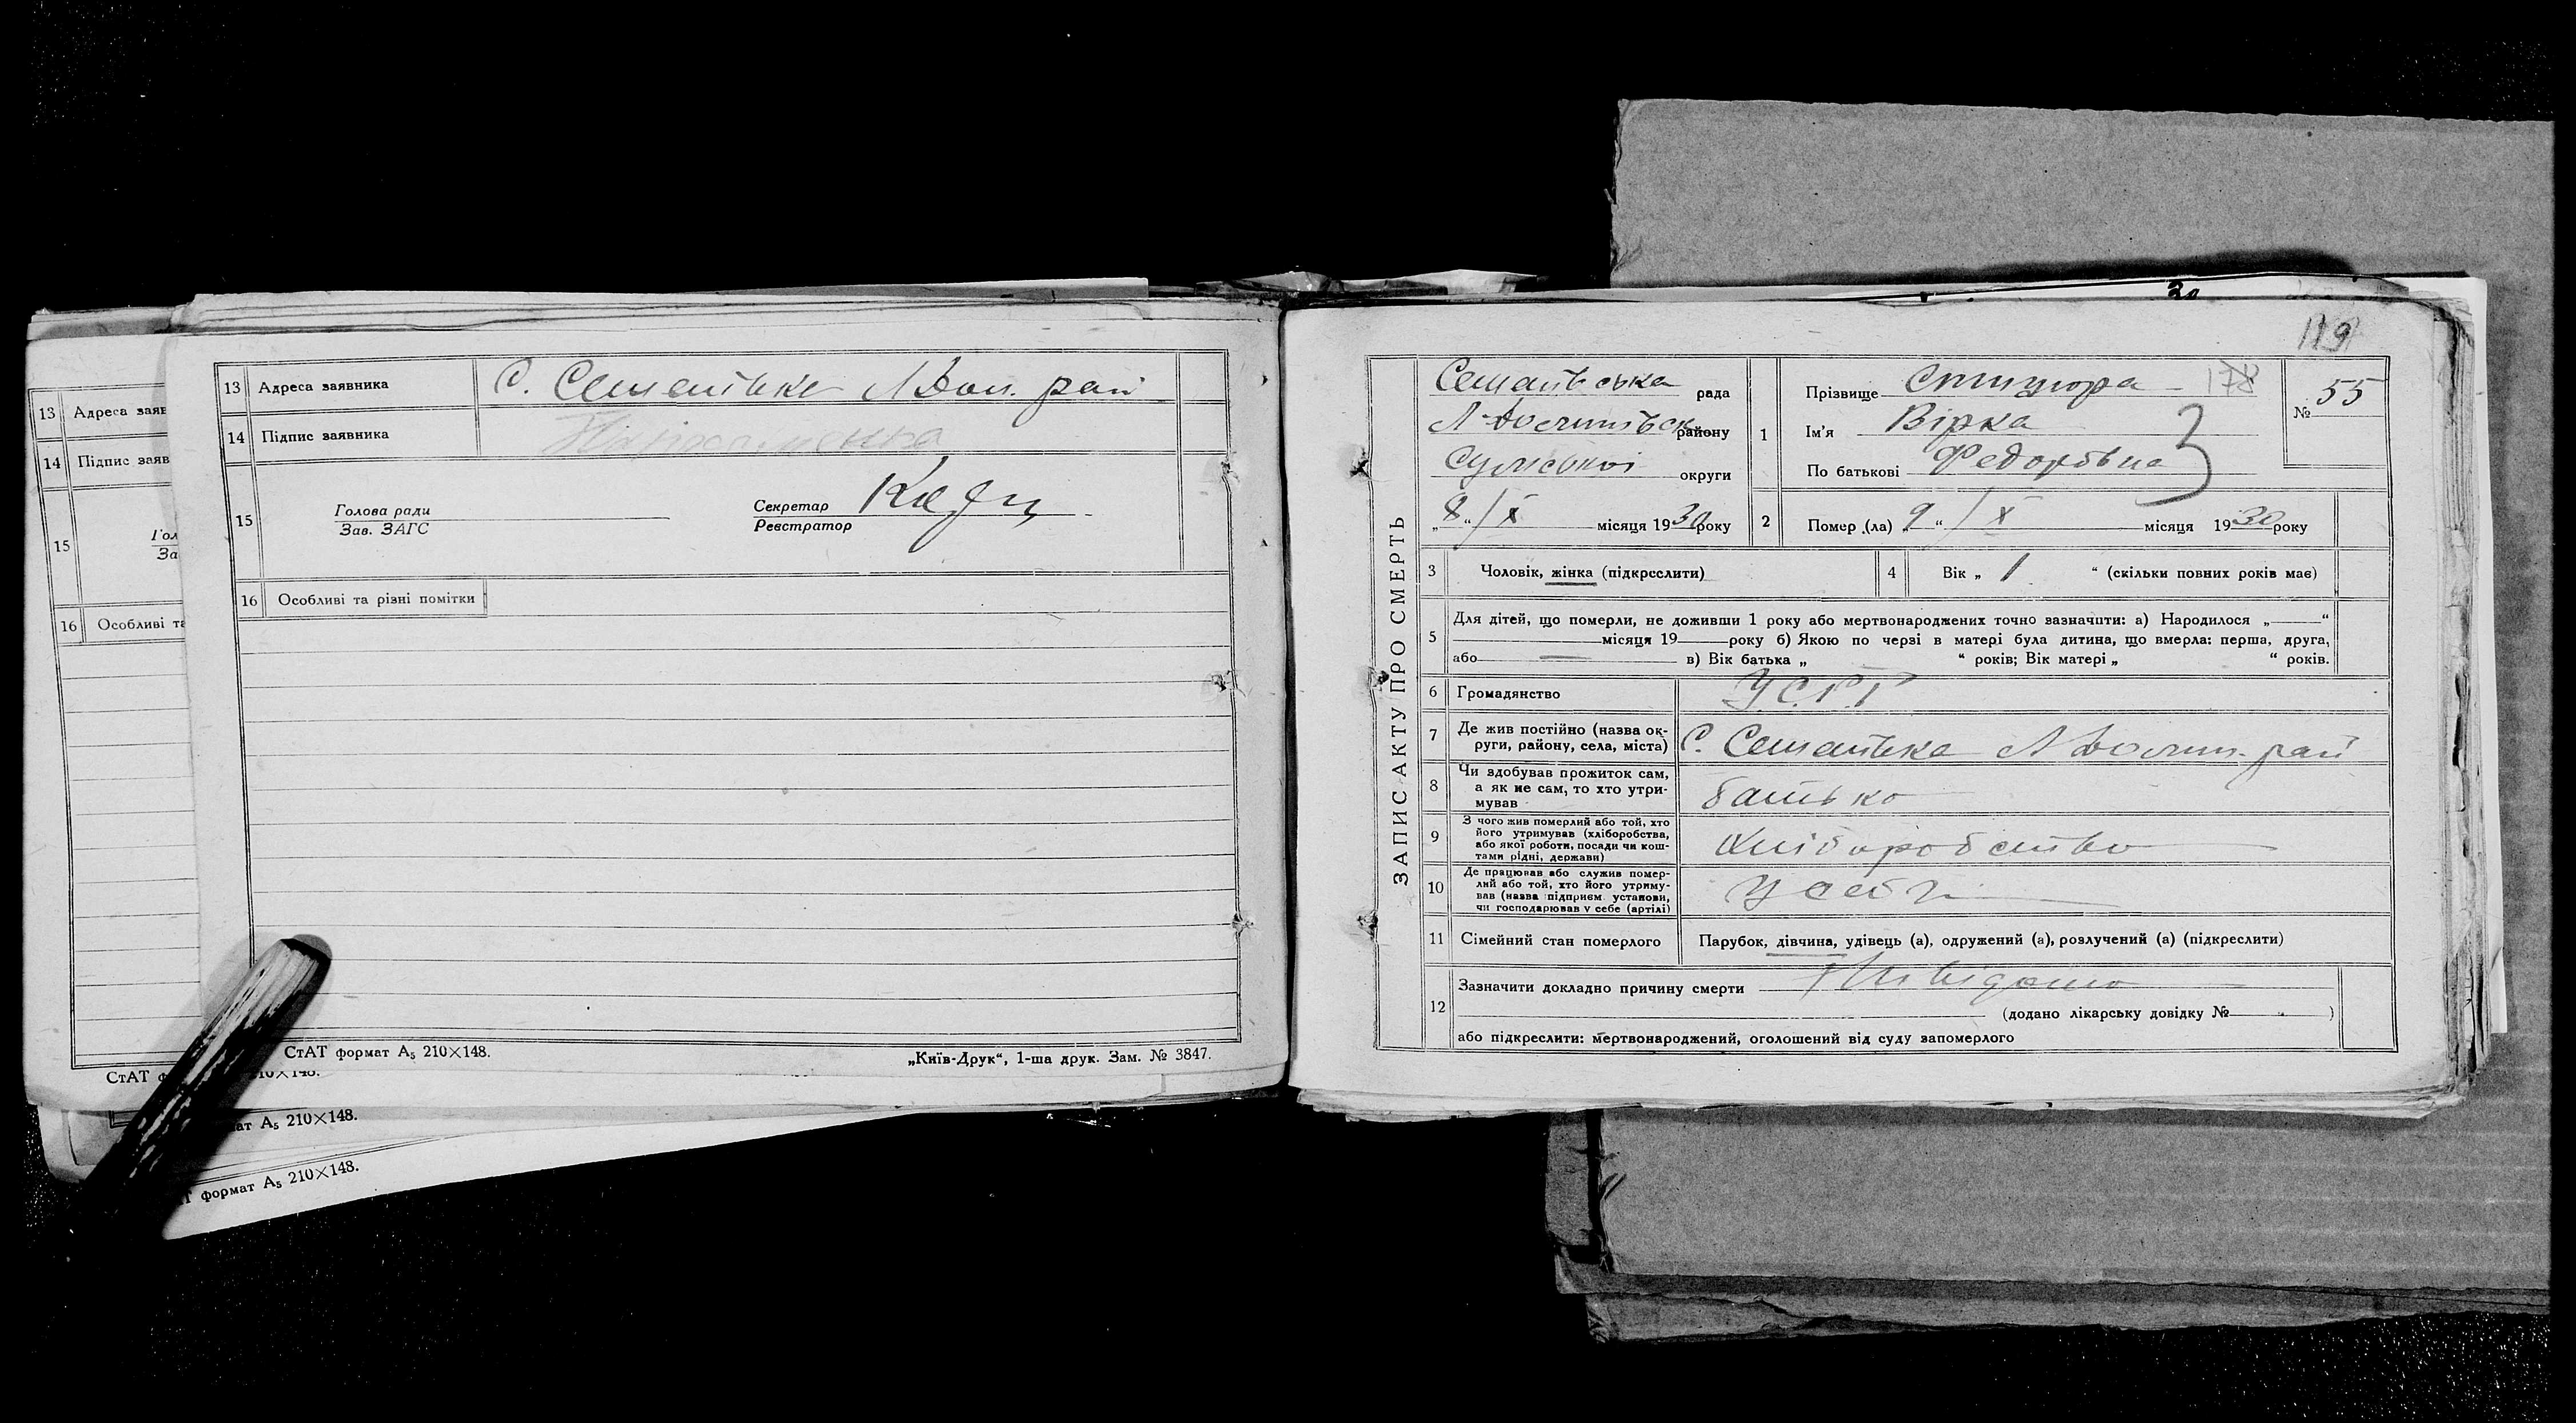 13 Адреса заявника С. Сешанівка Л Дол. рай
14 Підпис заявника
15 Голова ради
Зав. ЗАГС
Секретар
Реєстратор
16 Особливі та різні помітки
СтАТ формат А₅ 210×148.
„Київ-Друк“, 1-ша друк. Зам. № 3847.
13 Адреса заяв
14 Підпис заяв
15 Гол
За
16 Особливі та
СтАТ ф
ат А₅ 210×148.
формат А₅ 210×148.
119
ЗАПИС АКТУ ПРО СМЕРТЬ
рада
району
Сумської округи
„8“ / X місяця 1930 року
1 Прізвище 178
Ім'я Вірка
По батькові Федорівна
3
№ 55
2 Помер (ла) „9“ / X місяця 1930 року
3 Чоловік, жінка (підкреслити)
4 Вік „ 1 “ (скільки повних років має)
5 Для дітей, що померли, не доживши 1 року або мертвонароджених точно зазначити: а) Народилося „——“
місяця 19 року б) Якою по черзі в матері була дитина, що вмерла: перша, друга,
або — в) Вік батька „ “ років; Вік матері „ “ років.
6 Громадянство У.С.Р.Р
7 Де жив постійно (назва ок-
руги, району, села, міста)
8 Чи здобував прожиток сам,
а як не сам, то хто утри-
мував батько
9 З чого жив померлий або той, хто
його утримував (хліборобства,
або якої роботи, посади чи кош-
тами рідні, держави) Хліборобство
10 Де працював або служив помер-
лий або той, хто його утриму-
вав (назва підприєм. установи,
чи господарював у себе (артілі) У себе
11 Сімейний стан померлого Парубок, дівчина, удівець (а), одружений (а), розлучений (а) (підкреслити)
12 Зазначити докладно причину смерти Невідомо
(додано лікарську довідку № „ )
або підкреслити: мертвонароджений, оголошений від суду запомерлого